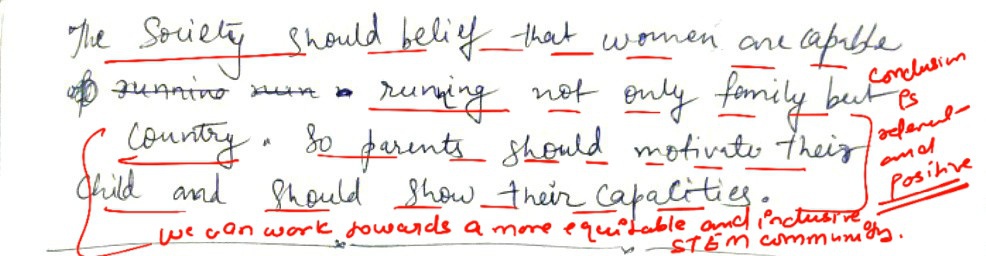 The Society should belief that women are capable
of running not only family but
country. So parents should motivate their
child and should show their capalities.
conclusion
is
relevant
and
positive
we can work towards a more equitable and inclusive
STEM community.